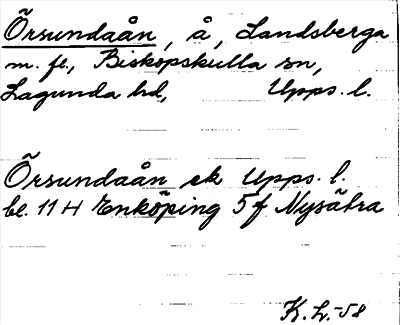 Örsundaån, å, Landsberga
m. fl., Biskopskulla sn,
Lagunda hd, Upps. l.
Örsundaån ek Upps. l.
bl. 11 H Enköping 5f Nysätra
K. L. -58